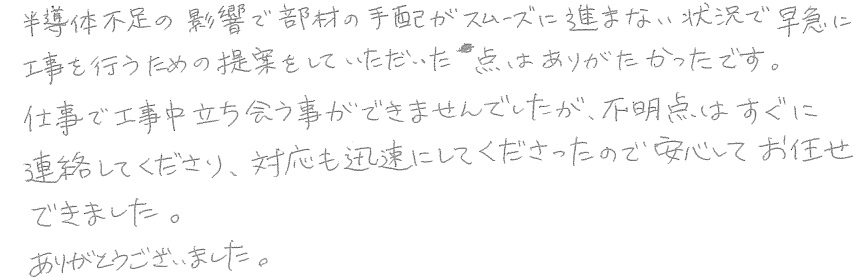 半導体不足の影響で部材の手配がスムーズに進まない状況で早急に
工事を行うための提案をしていただいた点はありがたかったです。
仕事で工事中立ち会う事ができませんでしたが、不明点はすぐに
連絡してくださり、対応も迅速にしてくださったので安心してお任せ
できました。
ありがとうございました。